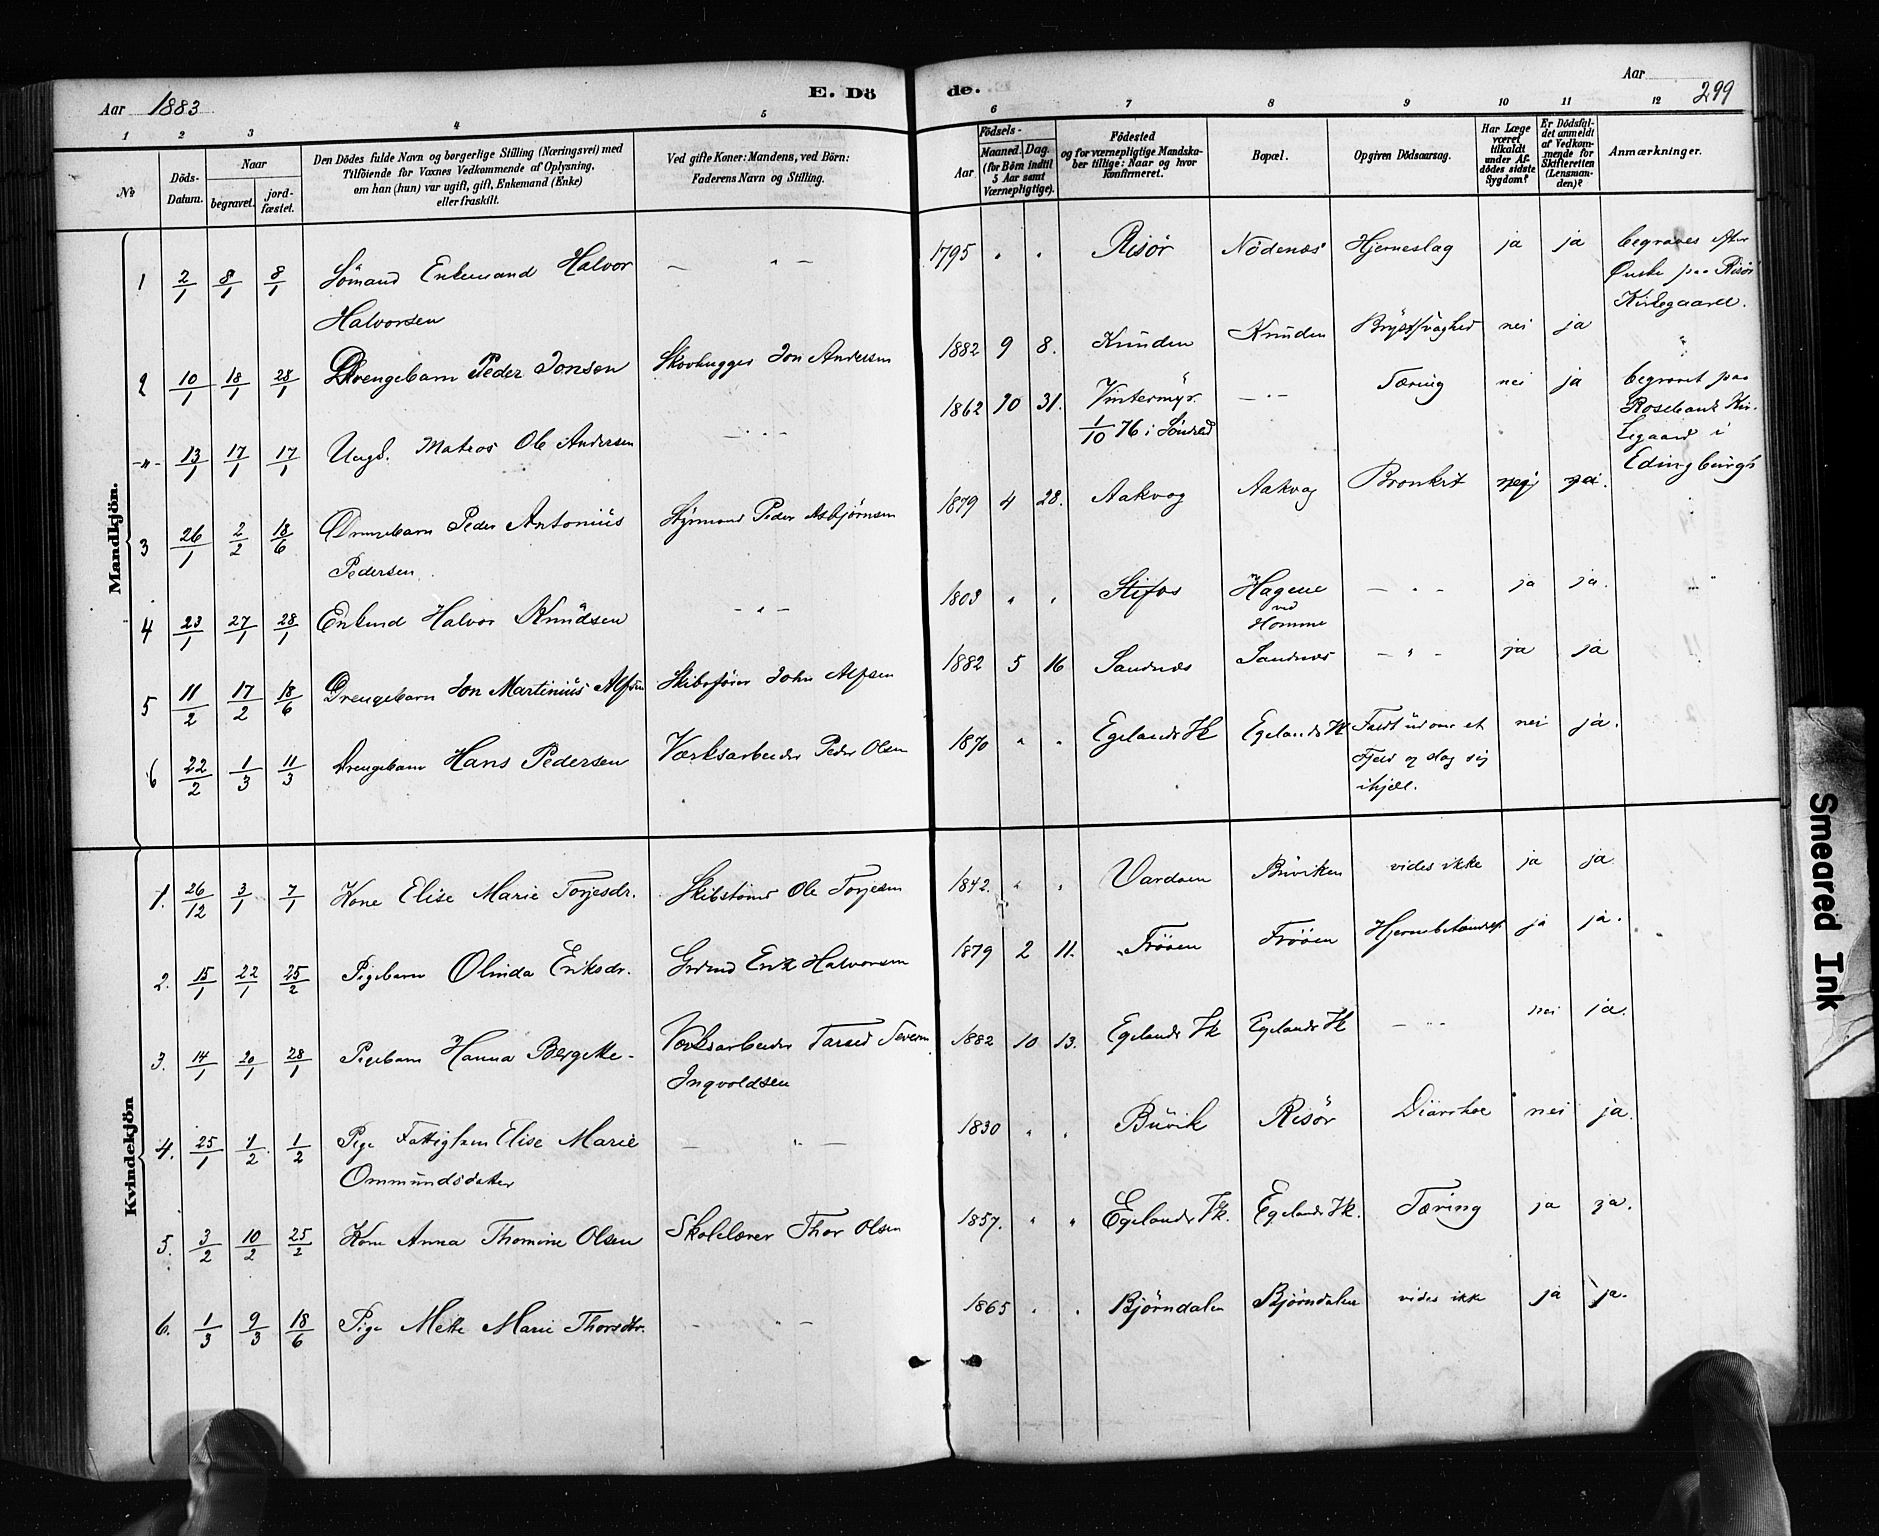 Aar 1883.
E. Dö
de.
Aar
299
1 2 3 4 5
6 7 8 9 10 11 12
No
Döds-Datum.
Naar
begravet.
jord-fæstet.
Den Dödes fulde Navn og borgerlige Stilling (Næringsvei) med
Tilföiende for Voxnes Vedkommende af Oplysning,
om han (hun) var ugift, gift, Enkemand (Enke)
eller fraskilt.
Ved gifte Koner: Mandens, ved Börn:
Faderens Navn og Stilling.
Födsels-
Aar
Maaned. Dag.
(for Börn indtil
5 Aar samt
Værnepligtige).
Födested
og for værnepligtige Mandska-
ber tillige: Naar og hvor
Konfirmeret.
Bopæl.
Opgiven Dödsaarsag.
Har Læge
været
tilkaldt
under Af-
dödes sidste
Sygdom?
Er Dödsfal-
det anmeldt
af Vedkom-
mende for
Skifteretten
(Lensman-
den)?
Anmærkninger.
Mandkjön.
1 2/1 8/1 8/1 Sömand Enkemand Halvor — " — 1795 " " Risør Nödenæs Hjerneslag ja ja begraves efter
Halvorsen Ønske paa Risør
Kirkegaard.
2 10/1 18/1 28/1 Drengebarn Peder Jonsen Skovhugger Jon Andersen 1882 9 8. Knuden Knuden Brystsvaghed nei ja "
-"- 13/1 17/1 17/1 Ungk. Matros Ole Andersen — " — 1862 10 31. Vintermyr — " — Tæring nei ja begravet paa
1/10 76 i Söndeled Rosebank Kir-
kegaard i
Edingburgh
3 26/1 2/2 18/6 Drengebarn Peder Antonius Styrmand Peder Asbjørnsen 1879 4 28. Aakvag Aakvag Bronkit nei ja.
Pedersen
4 23/1 27/1 28/1 Enkmd Halvor Knudsen — " — 1803 " " Stifos Hagene — " — ja ja. "
ved
Homme
5 11/2 17/2 18/6 Drengebarn Jon Martinius Alfsen Skibsfører John Alfsen 1882 5 16 Sandnæs Sandnæs — " — ja ja
6 22/2 1/3 11/3 Drengebarn Hans Pedersen Værksarbeider Peder Olsen 1870 " " Egelands Vk Egelands Vk Faldt ud over et nei ja.
Fjeld og slog sig
ihjæl.
Kvindekjön
1. 26/12 3/1 7/1 Kone Elise Marie Torjesdr. Skibstømr Ole Torjesen 1842. " " Vardøen Buviken vides ikke ja ja
2. 15/1 22/1 25/2 Pigebarn Olinda Eriksdr. Grdmd Erik Halvorsen 1879 2 11. Frøøen Frøøen Hjernebetændels. ja ja.
3. 14/1 20/1 28/1 Pigebarn Hanna Bergitte- Værksarbeider Tarald Severin 1882 10 13. Egelands Vk Egelands Vk — " — nei ja.
Ingvoldsen
4. 25/1 1/2 1/2 Pige Fattiglem Elise Marie — " — 1830 " " Buvik Risør Diarrhoe nei ja.
Ommundsdatter
5. 3/2 10/2 25/2 Kone Anna Thomine Olsen Skolelærer Thor Olsen 1857. " " Egelands Vk. Egelands Vk. Tæring ja ja.
6. 1/3 9/3 18/6 Pige Mette Marie Thorsdtr. — " — 1865 " " Björndalen Björndalen vides ikke ja ja.
Smeared Ink